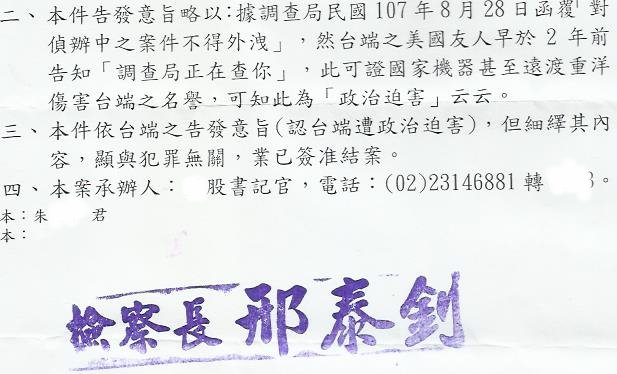 二、本件告發意旨略以:據調查局民國107年8月28日函覆「對
偵辦中之案件不得外洩」，然台端之美國友人早於2年前
告知「調查局正在查你」，此可證國家機器甚至遠渡重洋
傷害台端之名譽，可知此為「政治迫害」云云。
三、本件依台端之告發意旨(認台端遭政治迫害)，但細繹其內
容，顯與犯罪無關，業已簽准結案。
四、本案承辦人： 股書記官，電話：(02)23146881轉 。
本：朱 君
本：
檢察長 邢泰釗